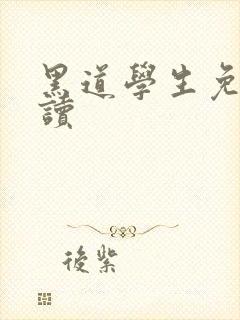 黑道學生免
讀
後紫